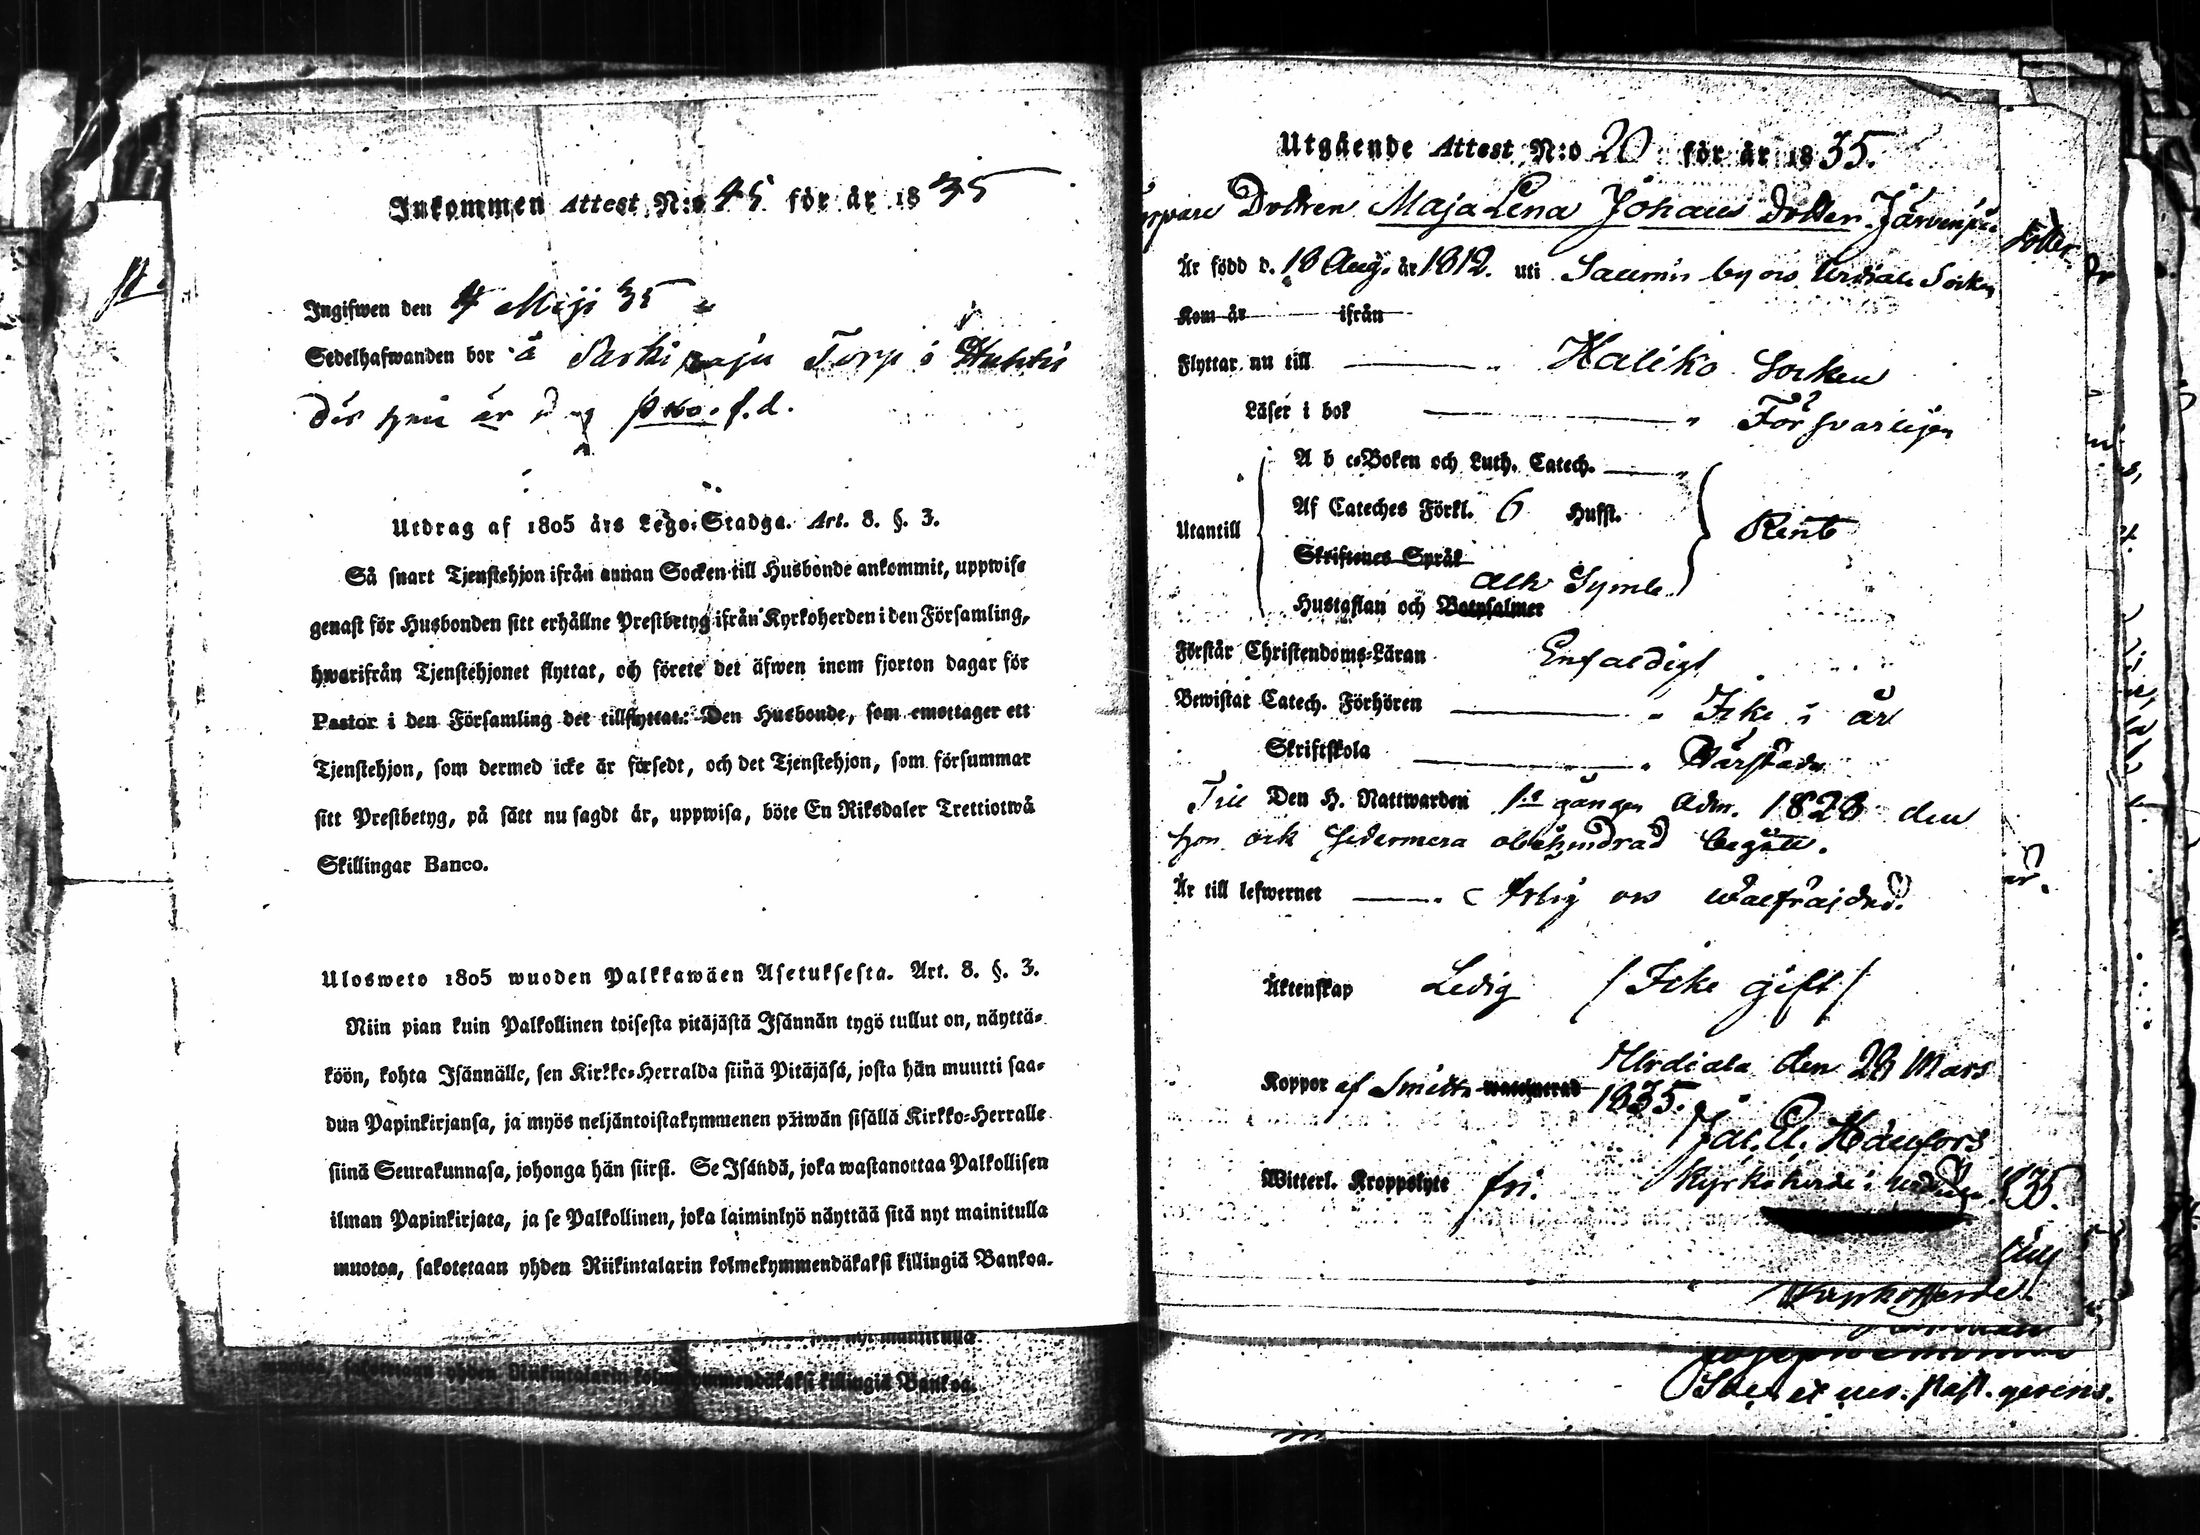 Inkommen Attest N:o 45 för år 1835
Ingifwen den 4 Maji 35
Sedelhafwanden bor å Torp i
där hon är
Utdrag af 1805 års Lego-Stadga. Art. 8. §. 3.
Så snart Tjenstehjon ifrån annan Socken till Husbonde ankommit, uppwise
genast för Husbonden sitt erhållne Prestbetyg ifrån Kyrkoherden i den Församling,
hwarifrån Tjenstehjonet flyttat, och förete det äfwen inom fjorton dagar för
Pastor i den Församling det tillflyttat. Den Husbonde, som emottager ett
Tjenstehjon, som dermed icke är försedt, och det Tjenstehjon, som försummar
sitt Prestbetyg, på sätt nu sagdt är, uppwisa, böte En Riksdaler Trettiotwå
Skillingar Banco.
Ulosweto 1805 wuoden Palkkawäen Asetuksesta. Art. 8. §. 3.
Niin pian kuin Palkollinen toisesta pitäjästä Isännän tygö tullut on, näyttä-
köön, kohta Isännälle, sen Kirkko-Herralda siinä Pitäjäsä, josta hän muutti saa-
dun Papinkirjansa, ja myös neljäntoistakymmenen päiwän sisällä Kirkko-Herralle
siinä Seurakunnasa, johonga hän siirsi. Se Isändä, joka wastanottaa Palkollisen
ilman Papinkirjata, ja se Palkollinen, joka laiminlyö näyttää sitä nyt mainitulla
muotoa, sakotetaan yhden Riikintalarin kolmekymmendäkaksi killingiä Bankoa.
Utgående Attest N:o 20 för år 1835.
Dottren Maja Lena Johans Dotter Järvenpää
Är född d. 18 Aug. år 1812. uti by och Urdiala Socken
Kom år ifrån
Flyttar nu till Haliko Socken
Läser i bok Försvarligen
A b c-Boken och Luth. Catech.
Af Cateches Förkl. 6 Hufst.
Utantill Rent
Skriftenes Språk
Ath Symb.
Hustaflan och Botpsalmer
Förstår Christendoms-Läran Enfaldigt
Bewistat Catech. Förhören Icke i år
Skriftskola
Till Den H. Nattwarden 1:a gången Adm. 1828 den
hon ock sedermera obehindrad begått.
Är till lefwernet Ärlig och wälfräjdad.
Äktenskap Ledig /Icke gift/
Urdiala den 28 Mars
Koppor af Smitta waccinerad 1835.
Jac. El. Hänfors
Witterl. Kroppslyte fri. Kyrkoherde i Urdiala